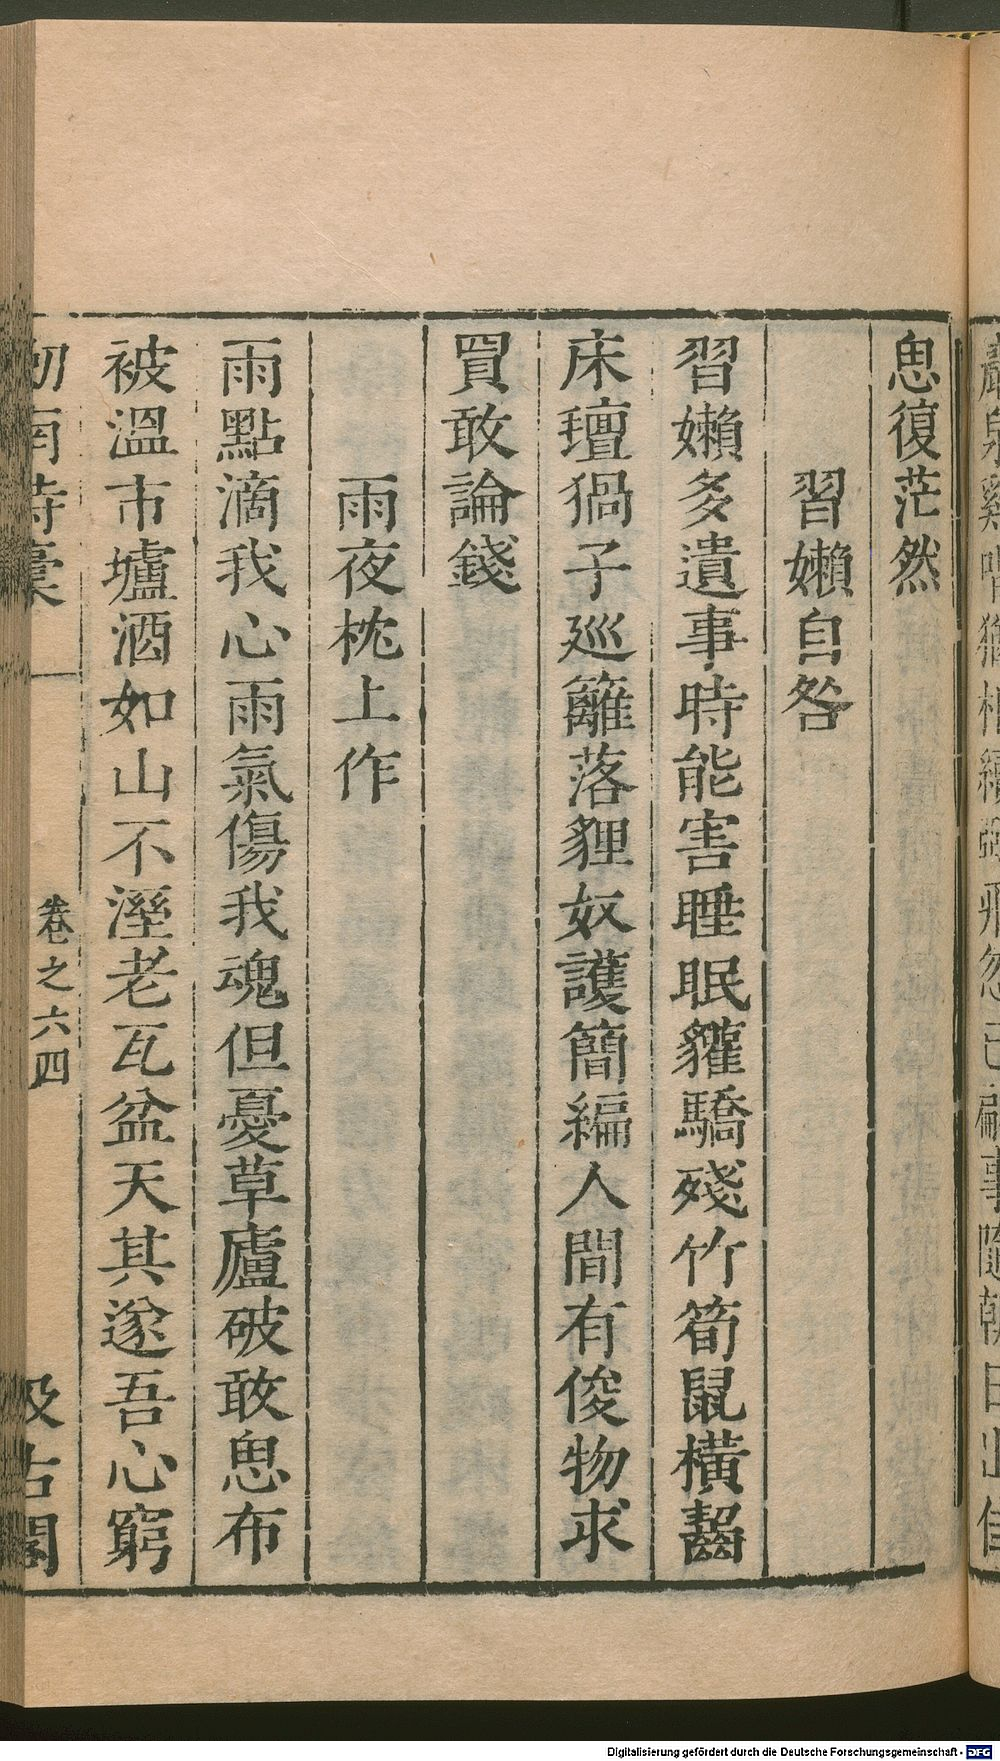 思復茫然
習嬾自咎
習嬾多遺事時能害睡眠貛驕殘竹筍鼠橫齧
床氊猧子巡籬落貍奴護簡編人間有俊物求
買敢論錢
雨夜枕上作
雨點滴我心雨氣傷我魂但憂草廬破敢思布
被溫市壚酒如山不溼老瓦盆天其遂吾心窮
劒南詩稾
卷之六四
汲古閣
Digitalisierung gefördert durch die Deutsche Forschungsgemeinschaft - DFG